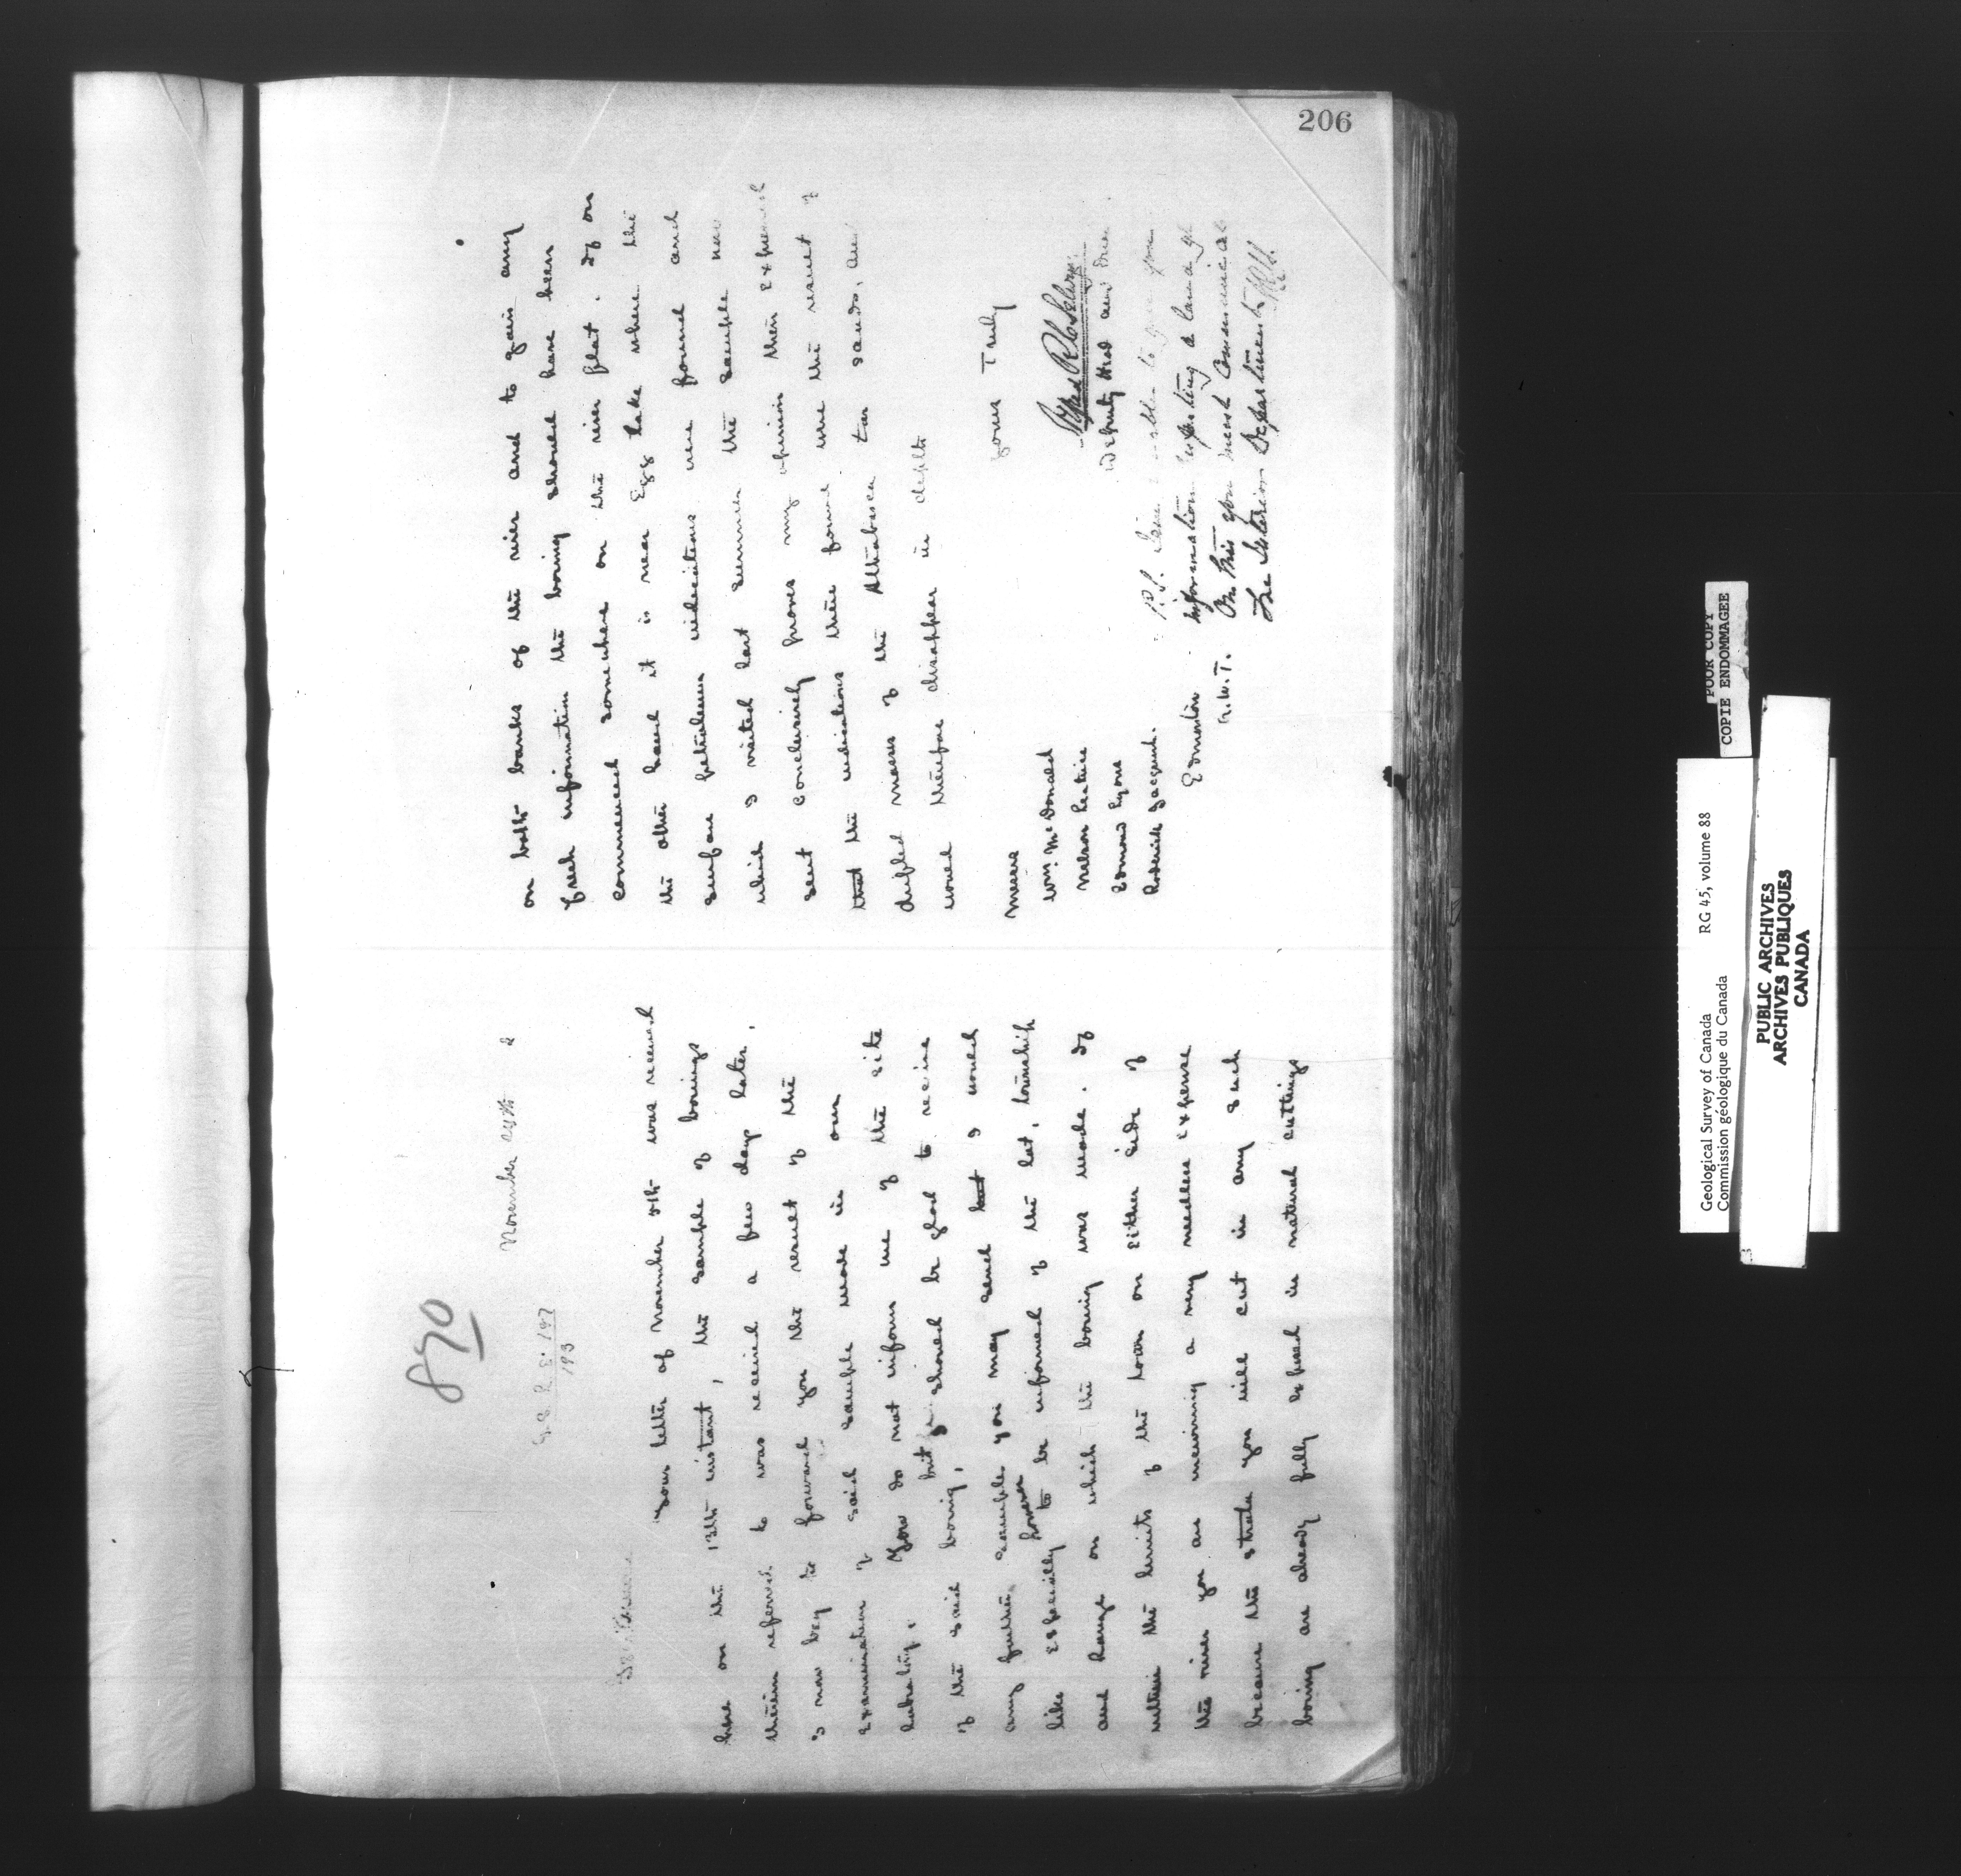 206
890
November 24th
G.S.L. E. 197
193
Gentlemen
Your letter of November 5th was received
here on the 13th instant, the sample of borings
therein referred to was received a few days later,
I now beg to forward you the result of the
examination of said sample made in our
Laboratory. You do not inform me of the site
of the said boring, but I should be glad to receive
any further samples you may send but I would
like especially however to be informed of the lot, township
and Range on which the boring was made. If
within the limits of the town on either side of
the river you are incurring a very needless expense
because the strata you will cut in any such
boring are already fully exposed in natural cuttings
on both banks of the river and to gain any
fresh information the boring should have been
commenced somewhere on the river flat. If on
the other hand it is near Egg Lake where the
surface petroleum indications were found and
which I visited last summer the sample now
sent conclusively proves my opinion then expressed
that the indications there found were the result of
drifted masses of the Athabasca tar sands, and
would therefore disappear in depth
Yours Truly
Alfred R. C. Selwyn
Deputy Head and Director
Messrs
Wm. McDonald
Nelson
Edmond Lyons
Roderick
Edmonton
N.W.T.
P.S. I am unable to give you
information respecting a land
On this you must communicate
The Interior Department
Geological Survey of Canada RG 45, volume 88
Commission géologique du Canada
POOR COPY
COPIE ENDOMMAGEE
PUBLIC ARCHIVES
ARCHIVES PUBLIQUES
CANADA